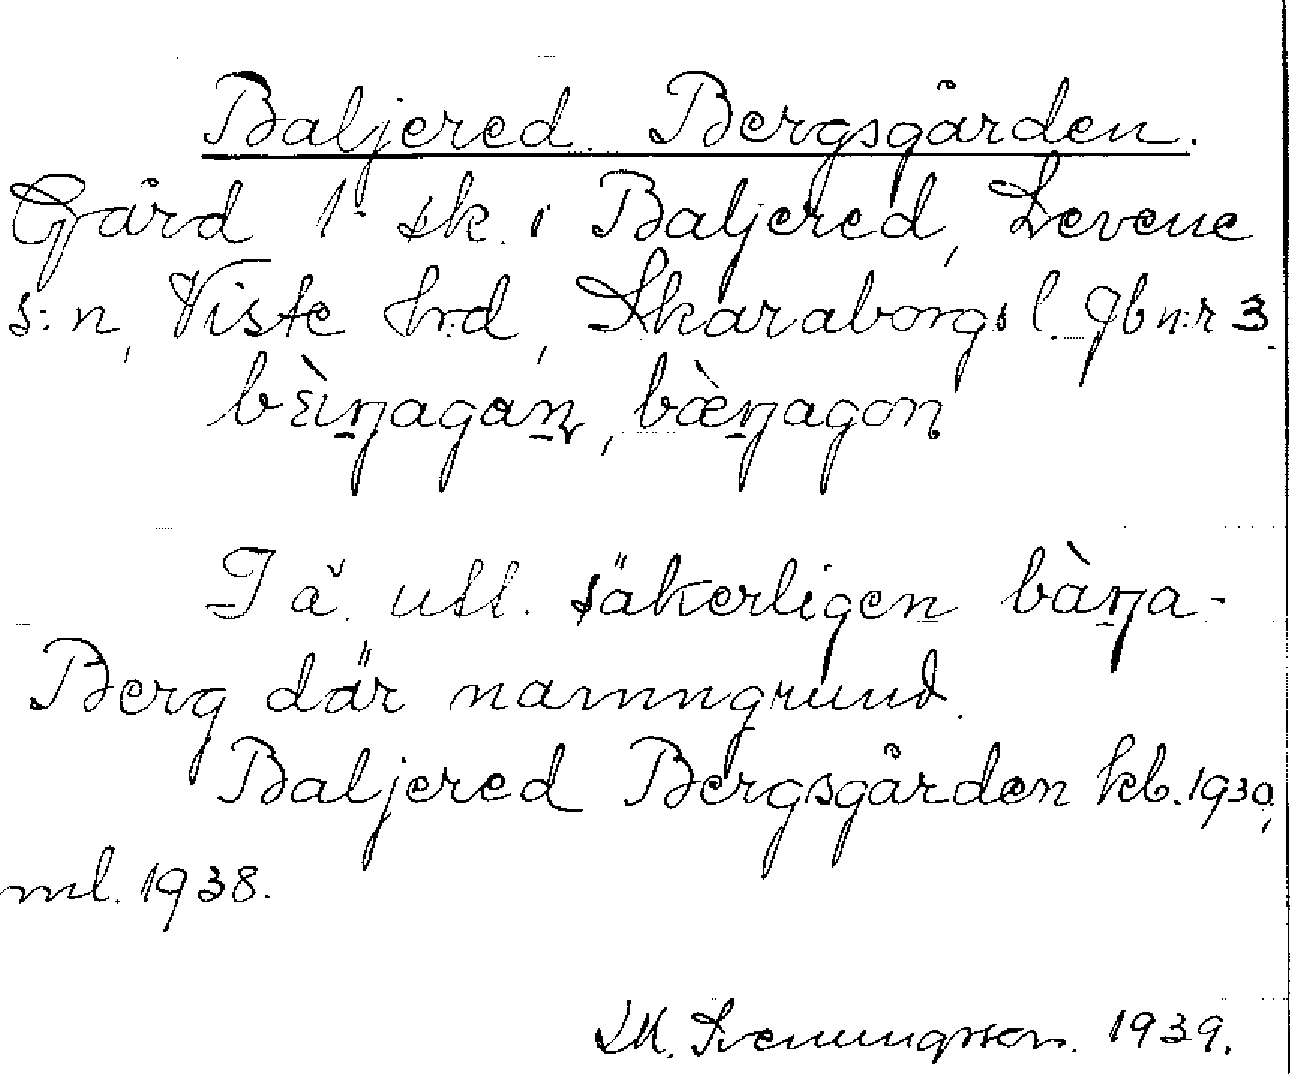 Baljered Bergsgården.
Gård 1 sk. i Baljered, Levene
s:n, Viste hrd, Skaraborgs l. Jbn:r 3.
bὲiŋagaṉ, bæ̀ŋagon
I ä. utt. säkerligen bàŋa-
Berg där namngrund.
Baljered Bergsgården kb. 1930,
ml. 1938.
Svenungsson. 1939.